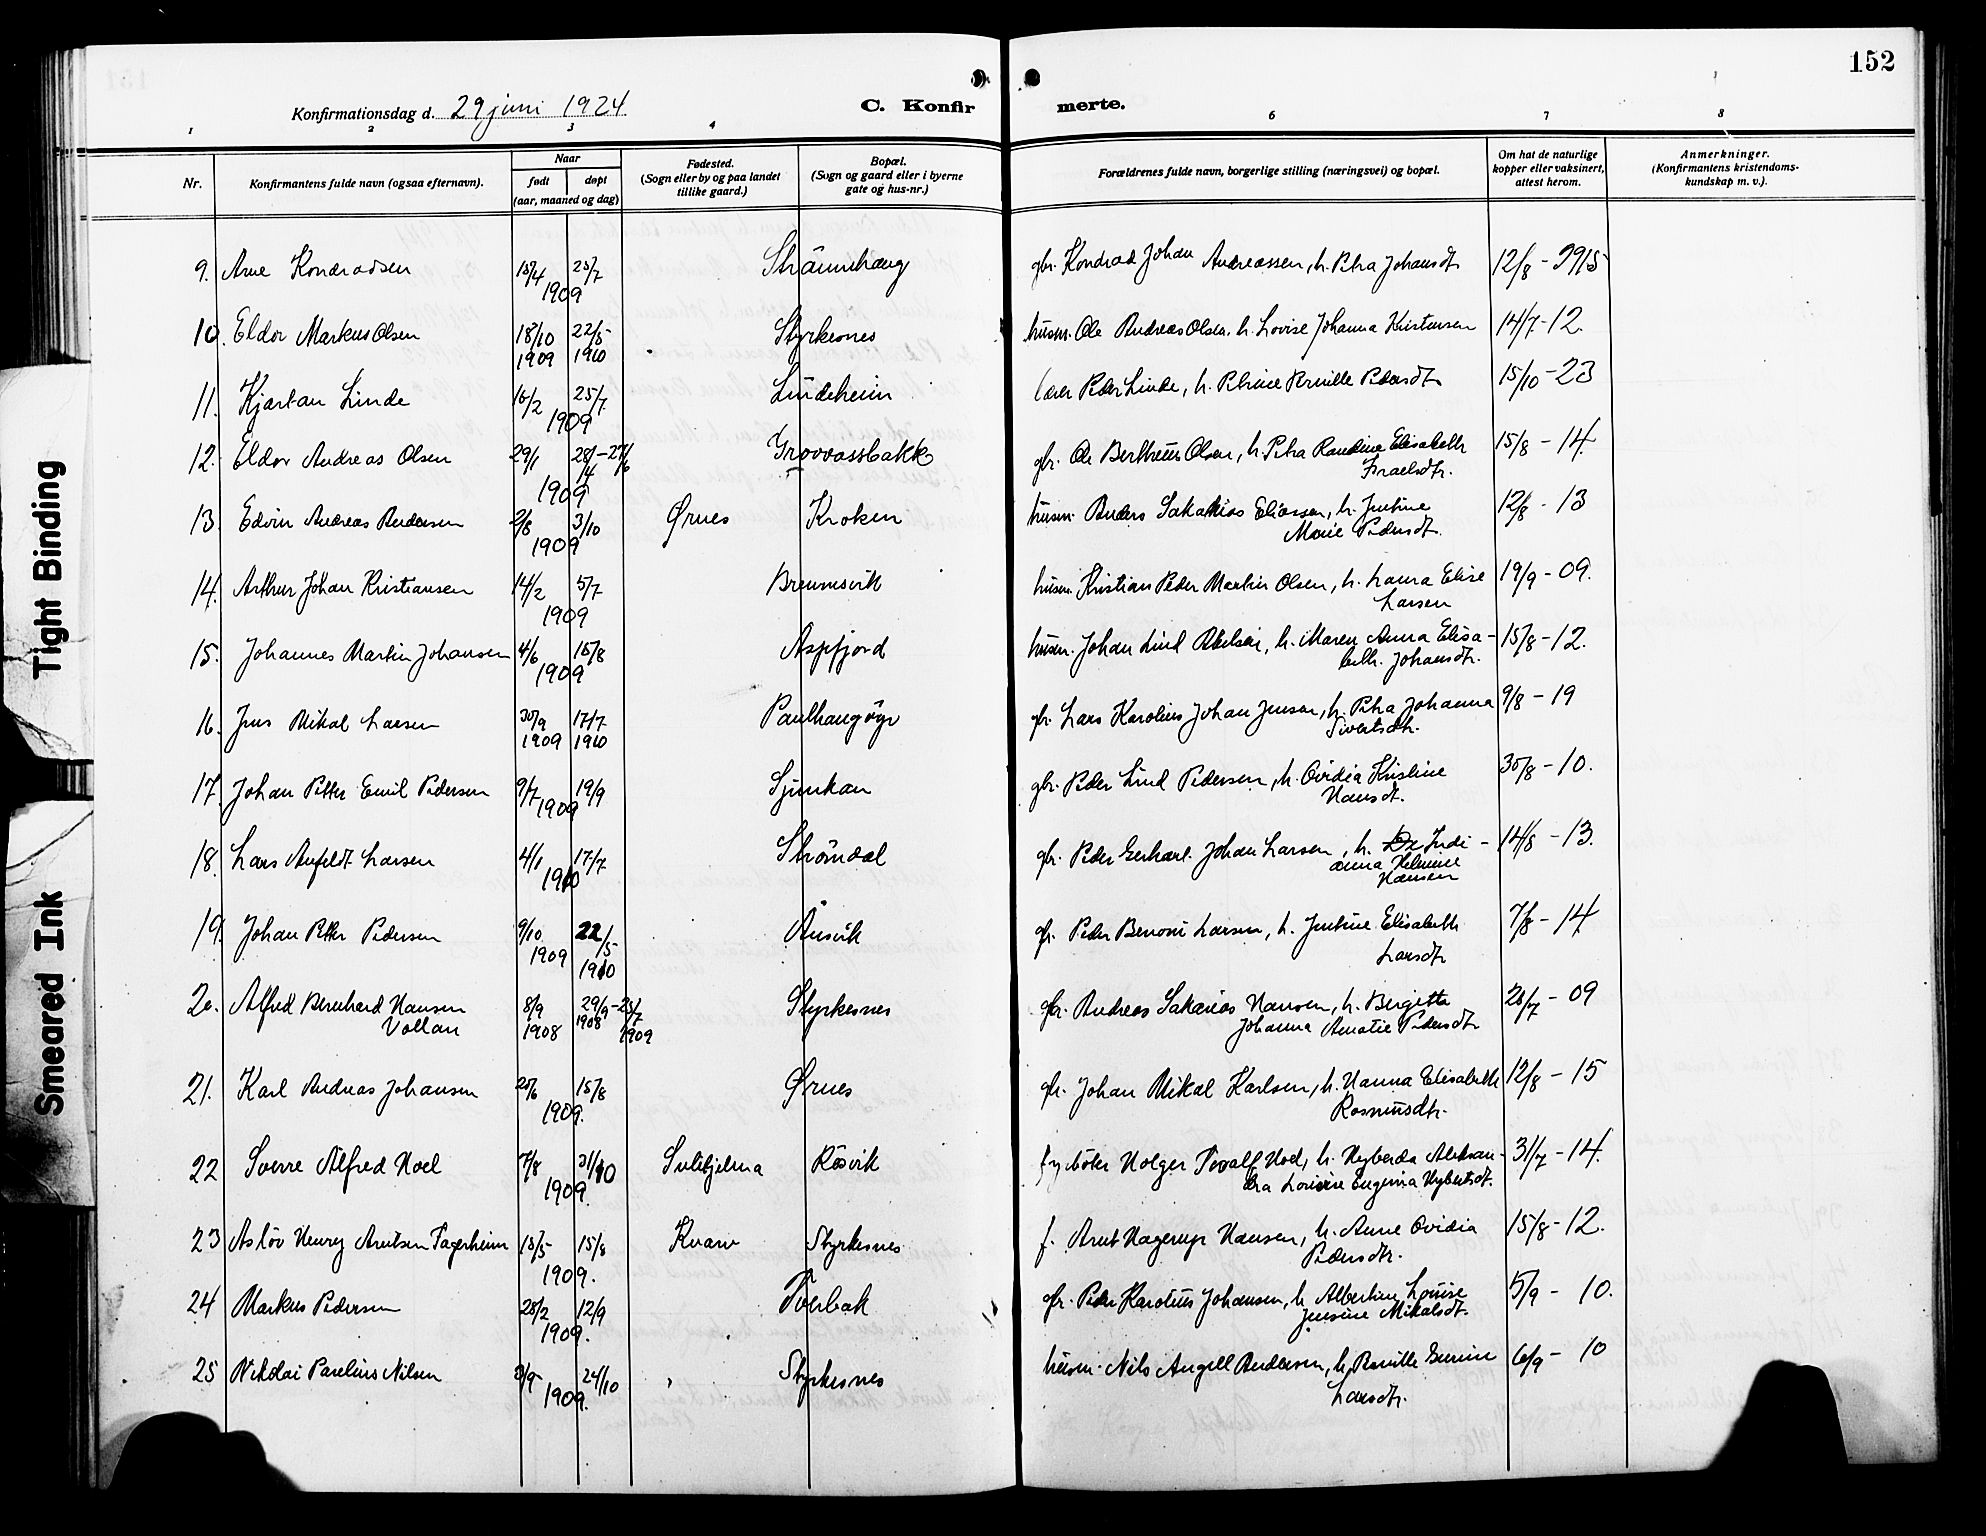 152
Konfirmationsdag d. 29 juni 1924
C. Konfirmerte.
1 2 3 4 6 7 8
Nr.
Konfirmantens fulde navn (ogsaa efternavn).
Naar
født døpt
(aar, maaned og dag)
Fødested.
(Sogn eller by og paa landet
tillike gaard.)
Bopæl.
(Sogn og gaard eller i byerne
gate og hus-nr.)
Forældrenes fulde navn, borgerlige stilling (næringsvei) og bopæl.
Om hat de naturlige
kopper eller vaksinert,
attest herom.
Anmerkninger.
(Konfirmantens kristendoms-
kundskap m. v.).
9. Arne Konradsen 15/4 25/7 Strännhaug gbr. Konrad Johan Andreassen, h. Petra Johansdt. 12/8 -
1909
10. Eldor Markus Olsen 18/10 22/5 Styrkesnes husm. Ole Andreas Olsen. h. Lovise Johanna Kristensen 14/7-12.
1909 1910
11. Kjartan Linde 16/2 25/7 Lindeheim lærer Peder Linde, h. Petrine Pernille Pedersdt. 15/10-23
1909
12. Eldor Andreas Olsen 29/1 Grovassbakk gbr. Ole Bertheus Olsen, h. Petra Randine Elisabeth 15/8 - 14.
1909 Israelsdtr.
13. Edvin Andreas Andersen 2/8 3/10 Ørnes Kroken husm. Anders Sakarias Eliassen, h. Justine 12/8 - 13
1909 Marie Pedersdt.
14. Arthur Johan Kristiansen 14/2 5/7 Bremnsvik husm. Kristian Peder Martin Olsen, h. Laura Elise 19/9 - 09.
1909 Larsen
15. Johannes Martin Johansen 4/6 15/8 Aspfjord husm. Johan Lind Abelsen, h. Maren Anna Elisa- 15/8-12.
1909 beth. Johansdtr.
16. Jens Mikal Larsen 30/9 17/7 Paulhaugöyr gbr. Lars Karolius Johan Jensen, h. Petra Johanna 9/8 - 19
1909 1910 Sivertsdtr.
17. Johan Petter Emil Pedersen 9/7 19/9 Sjunkan gbr. Peder Lind Pedersen, h. Ovidia Kristine 30/8 - 10.
1909 Hansdt.
18. Lars Anfeldt Larsen 4/1 17/7 Strömdal gbr. Peder Gerhart Johan Larsen, h. Indi- 14/8 - 13.
1910 anna Helmine
Hansen
19. Johan Petter Pedersen 9/10 22/5 Ånsvik gbr. Peder Benoni Larsen, h. Justine Elisabeth 7/8 - 14
1909 1910 Larsdtr
20. Alfred Bernhard Hansen 8/9 29/9-25/7 Styrkesnes gbr. Andreas Sakarias Hansen, h. Bergitte 28/7 - 09
Vollan 1908 1908 1909 Johanna Amalie Pedersdt.
21. Karl Andreas Johansen 20/6 15/8 Ørnes gbr. Johan Mikal Karlsen, h. Hanna Elisabeth 12/8 - 15
1909. Rasmusdtr.
22 Sverre Alfred Moel 7/8 31/10 Sulitjelma Rösvik fyrböter Holger h. Aleksan- 31/7 - 14.
1909. dra Eugenia
23 Aslöv Henry Arntsen Fagerheim 15/5 15/8 Kvarv Styrkesnes f. Arnt Hagerup Hansen, h. Anne Ovidia 15/8-12.
1909. Pedersdtr.
24 Markus Pedersen 28/2 12/9 Tverbak gbr. Peder Karolius Johansen, h. Albertine Lovise 15/9 - 10.
1909. Jensine Mikalsdt.
25 Nikolai Parelius Nilsen 3/9 24/10 Styrkesnes husm. Nils Angell Andersen, h. Pernille 6/9 - 10
1909. Larsdtr.
Tight Binding
Smeared Ink